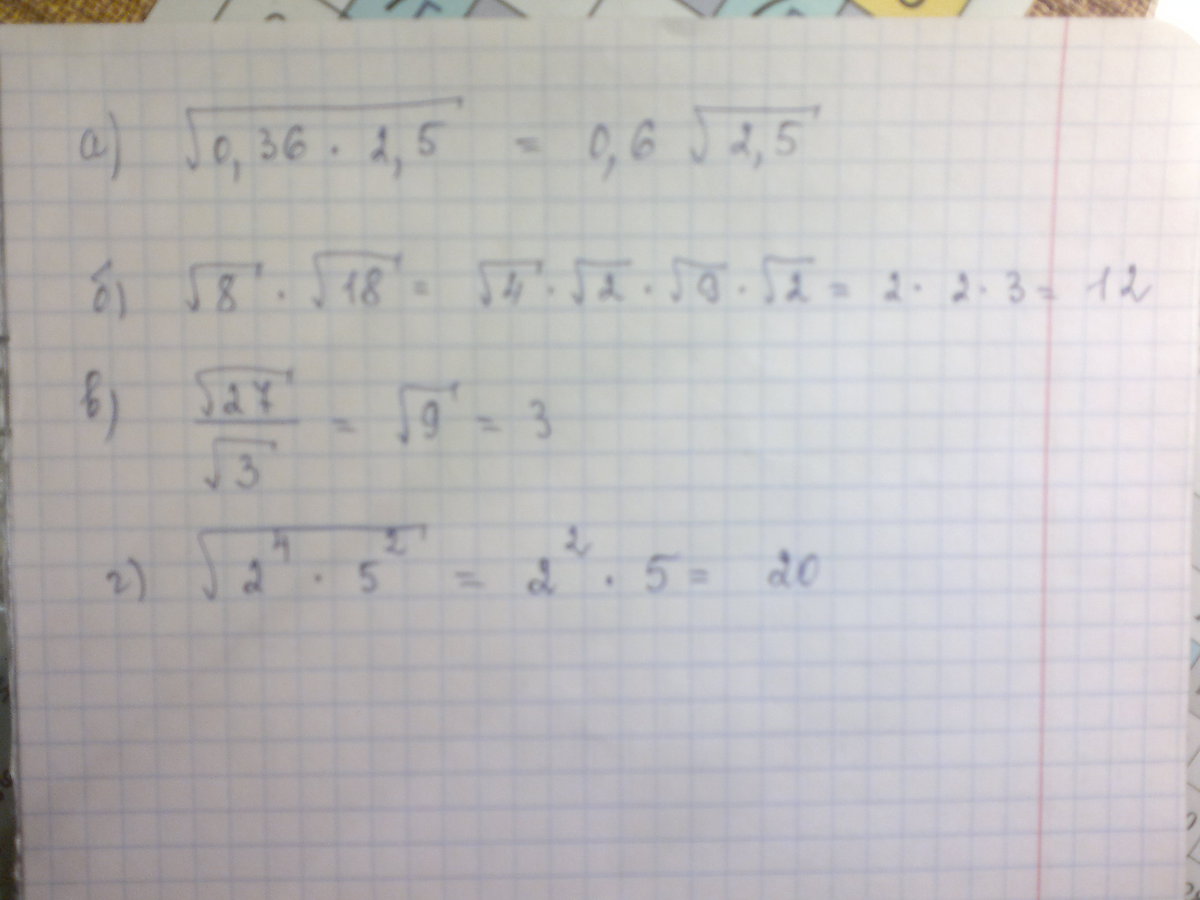 а) √0,36 · 2,5 = 0,6 √2,5
б) √8 · √18 = √4 · √2 · √9 · √2 = 2 · 2 · 3 = 12
в) √27/√3 = √9 = 3
г) √2⁴ · 5² = 2² · 5 = 20